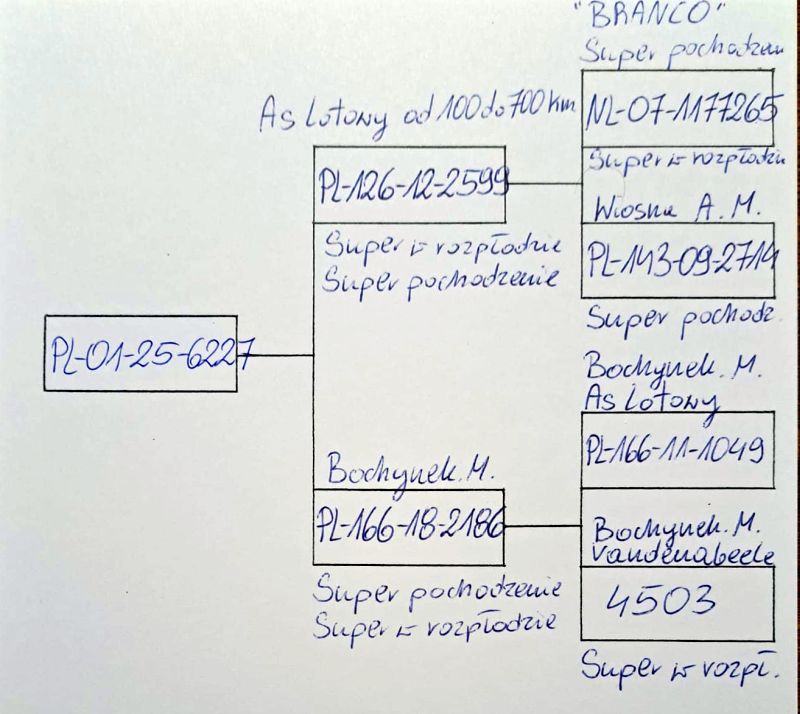 "BRANCO"
Super pochodzen
As Lotowy od 100 do 700 km
NL-07-1177265
PL-126-12-2599
Super w rozpłodzi
Wiosna A. M.
Super w rozpłodzie
Super pochodzenie
PL-143-09-2714
Super pochodz.
PL-01-25-6227
Bochynek. M.
As Lotowy
PL-166-11-1049
Bochynek. M.
PL-166-18-2186
Bochynek. M.
Vandenabeele
Super pochodzenie
Super w rozpłodzie
4503
Super w rozpł.